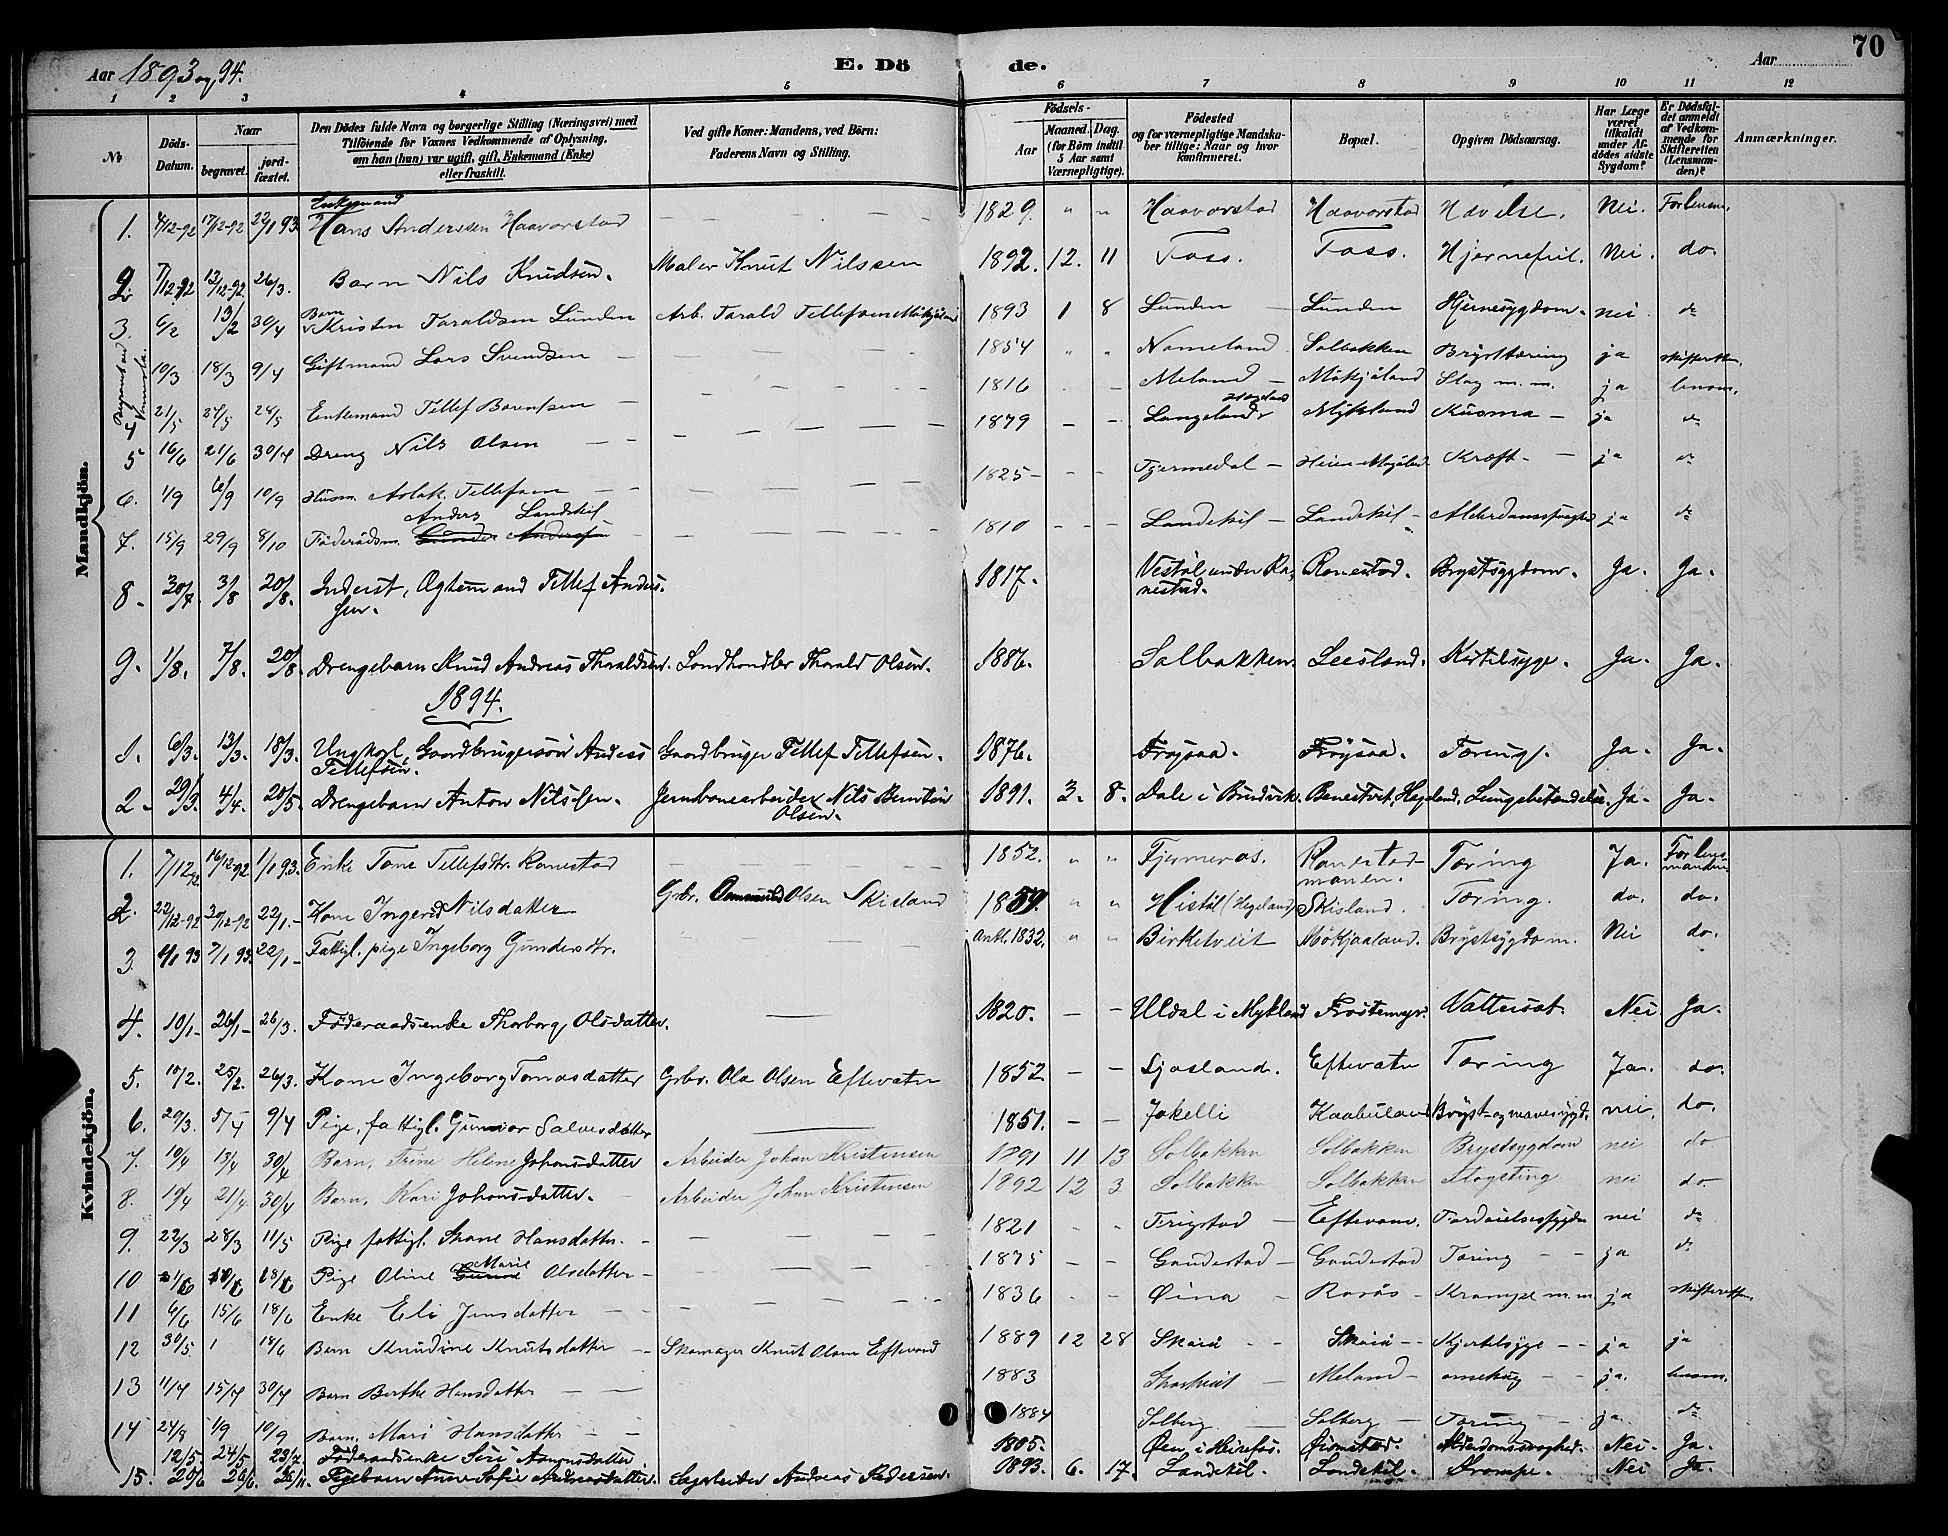 Aar 1893 og 94.
E. Dö de.
Aar
70
1 2 3 4 5 6 7 8 9 10 11 12
No
Döds-Datum.
Naar
begravet.
jord-fæstet.
Den Dödes fulde Navn og borgerlige Stilling (Næringsvei) med
Tilföiende for Voxnes Vedkommende af Oplysning,
om han (hun) var ugift, gift, Enkemand (Enke)
eller fraskilt.
Ved gifte Koner: Mandens, ved Börn:
Faderens Navn og Stilling.
Födsels-
Aar
Maaned. Dag.
(for Börn indtil
5 Aar samt
Værnepligtige).
Födested
og for værnepligtige Mandska-
ber tillige: Naar og hvor
konfirmeret.
Bopæl.
Opgiven Dödsaarsag.
Har Læge
været
tilkaldt
under Af-
dödes sidste
Sygdom?
Er Dödsfal-
det anmeldt
af Vedkom-
mende for
Skifteretten
(Lensman-
den)?
Anmærkninger.
Mandkjön.
1. 4/12-92 17/12-92 22/1 93. Enkemand Hans Anderssen Haavorstad — 1829. " " Haavorstad Haavorstad Hævelse. Nei. For lensm.
2. 7/12-92 12/12-92 26/3. Barn Nils Knudsen. Maler Knut Nilssen 1892. 12. 11 Foss. Foss. Hjernefeil. Nei. do.
3. 6/2 13/2 30/4 Barn Kristen Taraldsen Lunden Arb. Tarald Tellefsen 1893 1 8 Lunden Lunden Hjernesygdom. nei do
4 10/3 18/3 9/4 Giftmand Lars Svendsen — 1854 " " Nomeland Solbakken Brysttæring ja skifteretten.
21/5 27/5 28/5 Enkemand Tellef Berentsen — 1816 Meland Mökjåland Slag m. m. ja lensm.
5 16/6 21/6 30/7 Dreng Nils Olsen — 1879 — — Langeland Mykland ja do
6. 1/9 6/9 10/9 Husm. Aslak Tellefsen — 1825 — — Tjermedal Kræft — ja do
7. 15/9 29/9 8/10 Föderådsm. Anders Landekil 1810 — — Landekil — Landekil — Alderdomssvaghed ja do
8. 30/7 3/8 20/8. Inderst, Ægtemand Tellef Anders-
sen. 1817. Vestöl, under Ra-
nestad. Ranestad. Brystsygdom. Ja. Ja.
9. 1/8. 7/8. 20/8. Drengebarn Knud Andreas Tharaldsen. Landhandler Tharald Olsen. 1886. Solbakken. Leesland. Kirtelsyge. Ja. Ja.
1894.
1. 6/3. 13/3. 18/3. Ungkarl, Gaardbrugersön Anders
Tellefsen. Gaardbruger Tellef Tellefsen. 1876. Fröysaa. Fröysaa. Tæring. Ja. Ja.
2. 29/3. 4/4. 20/5. Drengebarn Anton Nilssen. Jernbanearbeider Nils Berntin
Olsen. 1891. 3. 8. Dale i Bindvik. Hegeland. Lungebetændelse. Ja. Ja.
Kvindekjön.
1. 7/12 92 16/12-92 1/1 93. Enke Tone Tellefsdtr. Ranestad — 1852. " " Tjermeros. Ranestad-
manen. Tæring Ja. For lens-
manden
2. 22/12-92 30/12-92 22/1.- Kone Ingerid Nilsdatter Grbr. Osmund Olsen Skisland 1859. " " Histöl (Hegeland) Skisland. Tæring. do. do.
3. 4/1 93 7/1 93. 22/1- Fattigl. pige Ingeborg Gundersdtr. — 1832. " " Birketveit Mökjaaland. Brystsygdom. Nei do.
4. 10/1- 26/1- 26/3. Föderaadsenke Thorborg Olsdatter. — 1820. — — Uldal i Mykland Frostemyr. Vattersot. Nei Ja.
5. 10/2. 25/2. 26/3. Kone Ingeborg Tomasdatter Grbr. Ola Olsen Eftevatn 1852. — — Ljosland. Eftevatn Tæring Ja. do.
6. 29/3. 5/4 9/4 Pige, fattigl. Gunvor Salvesdatter — 1851. — — Jokelli Kaabuland Bryst- og mavesygd. nei. do.
7. 10/4 13/4 30/4 Barn, Trine Helene Johansdatter Arbeider Johan Kristensen 1891 11 13 Solbakken Solbakken Brystsygdom nei do
8. 19/4 21/4. 30/4 Barn, Kari Johansdatter. Arbeider Johan Kristensen 1892 12 3 Solbakken Solbakken nei do
9. 22/3 28/3 11/5 Pige fattigl. Hansdatter. — 1821 Trigstad — nei do
10 18/6 Pige Oline Marie Olsdatter — 1875 — — Gaudestad — Gaudestad Tæring — ja do
11 6/6 15/6 18/6 Enke Eli Jensdatter — 1836 Öina — Rosås — Krampe m.m ja skifteretten.
12 30/5. 1 18/6 Barn Knudine Knutsdatter — Skomager Knut Olsen Eftevand 1889 12 28 Skaiå — Skaiå — Kjertelsyge — ja ja
13 11/7 15/7 30/7 Barn Berthe Hansdatter — 1883 Meland — ja. lensm.
14 24/8 1/9 10/9 Barn, Mari Hansdatter — 1884 Solberg — Solberg — Tæring — ja. do
12/5. 24/5 23/7. Föderaadsenke Siri Aanensdatter 1805. Öen, i Heirefos. Alderdomssvaghed. Nei. Ja.
15. 20/6 26/6. Pigebarn Anne Sofie Andreasdatter. Sagarbeider Andreas Pedersen. 1893. 6. 17. Landekil. Landekil. Krampe. Nei Ja.